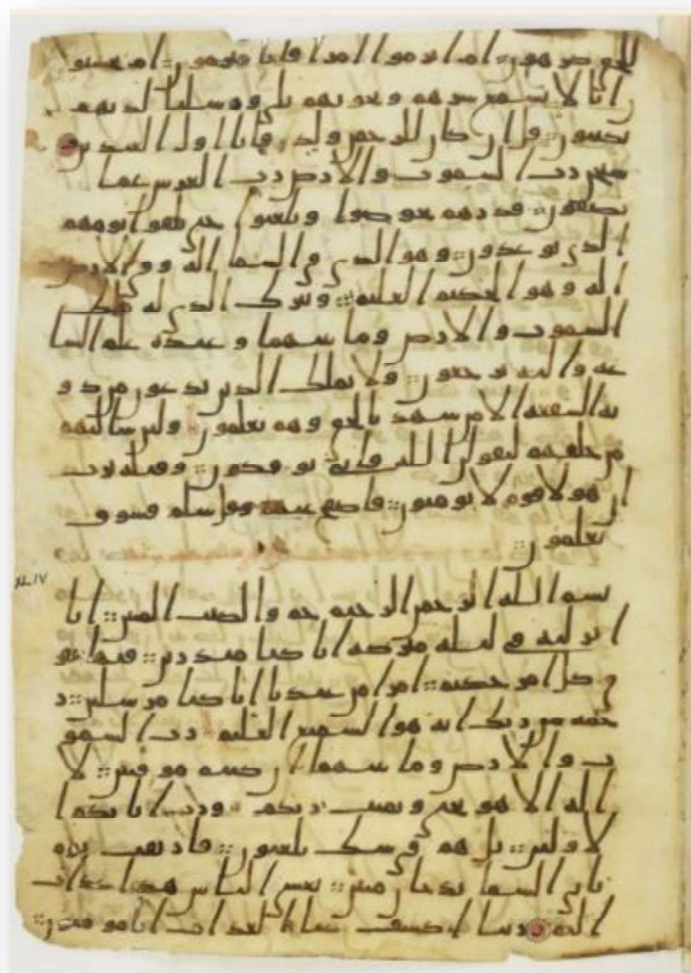 للحق كرهون ام ابرموا امرا فانا مبرمون ام يحسبو
ن انا لا نسمع سرهم ونجويهم بلى ورسلنا لديهم
يكتبون قل ان كان للرحمن ولد فانا اول العبدين
سبحن رب السموت والارض رب العرش عما
يصفون فذرهم يخوضوا ويلعبوا حتى يلقوا يومهم
الذي يوعدون وهو الذي في السما اله وفي الارض
اله وهو الحكيم العليم وتبرك الذي له ملك
السموت والارض وما بينهما وعنده علم السا
عة واليه ترجعون ولا يملك الذين يدعون من دو
نه الشفعة الا من شهد بالحق وهم يعلمون ولين سالتهم
من خلقهم ليقولن الله فانى يوفكون وقيله يرب
ان هولا قوم لا يومنون فاصفح عنهم وقل سلم فسوف
يعلمون
XLIV
بسم الله الرحمن الرحيم حم والكتب المبين انا
انزلنه في ليلة مبركة انا كنا منذرين فيها يفر
ق كل امر حكيم امرا من عندنا انا كنا مرسلين ر
حمة من ربك انه هو السميع العليم رب السمو
ت والارض وما بينهما ان كنتم موقنين لا
اله الا هو يحي ويميت ربكم ورب ابايكم ا
لاولين بل هم في شك يلعبون فارتقب يوم
تاتي السما بدخان مبين يغشى الناس هذا عذاب
اليم ربنا اكشف عنا العذاب انا مومنون